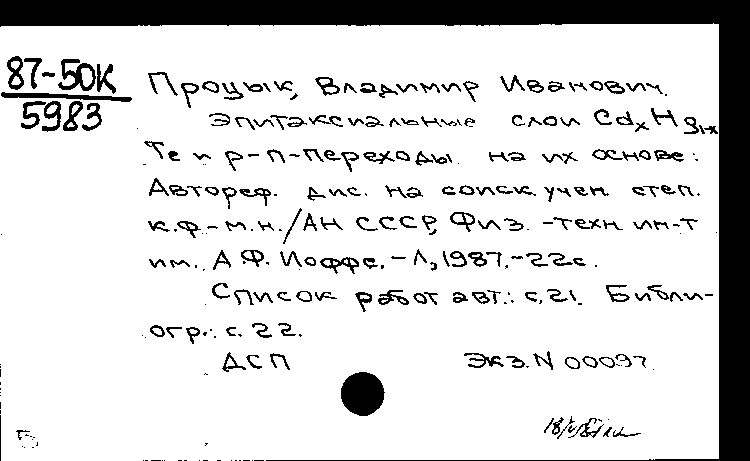 87-50К
5983
Процык, Владимир Иванович.
Эпитаксиальные слои CdxHg1-x
Te и p-n-переходы на их основе:
Автореф. дис. на соиск. учен. степ.
к.ф.-м.н./АН СССР, Физ.-техн. ин-т
им. А.Ф. Иоффе.-Л.,1987.-22с.
Список работ авт.: с.21. Библи-
огр.: с. 22.
ДСП Экз. N 00097